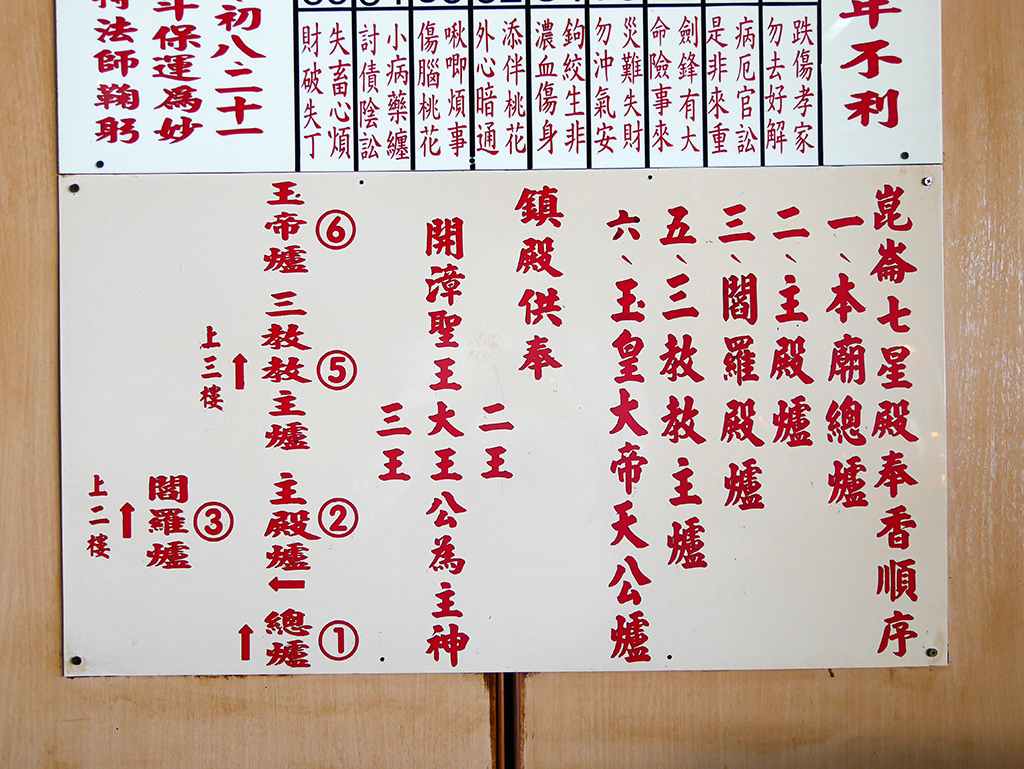 年不利
跌傷孝家
勿去好解
病厄官訟
是非來重
劍鋒有大
命險事來
災難失財
勿沖氣安
鉤絞生非
濃血傷身
添伴桃花
外心暗通
啾唧煩事
傷腦桃花
小病藥纏
討債陰訟
失畜心煩
財破失丁
初八、二十一
斗保運爲妙
法師鞠躬
崑崙七星殿奉香順序
一、本廟總爐
二、主殿爐
三、閻羅殿爐
五、三教教主爐
六、玉皇大帝天公爐
鎮殿供奉
二王
開漳聖王大王公為主神
三王
⑥ 玉帝爐
⑤ 三教教主爐
上三樓 ↑
② 主殿爐 ←
① 總爐 ↑
③ 閻羅爐
上二樓 ↑